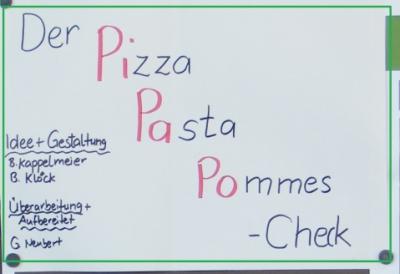 Der Pizza
Pasta
Pommes
-Check
Idee+Gestaltung
B. Kappelmeier
B. Klöck
Überarbeitung+
Aufbereitet
G. Neubert